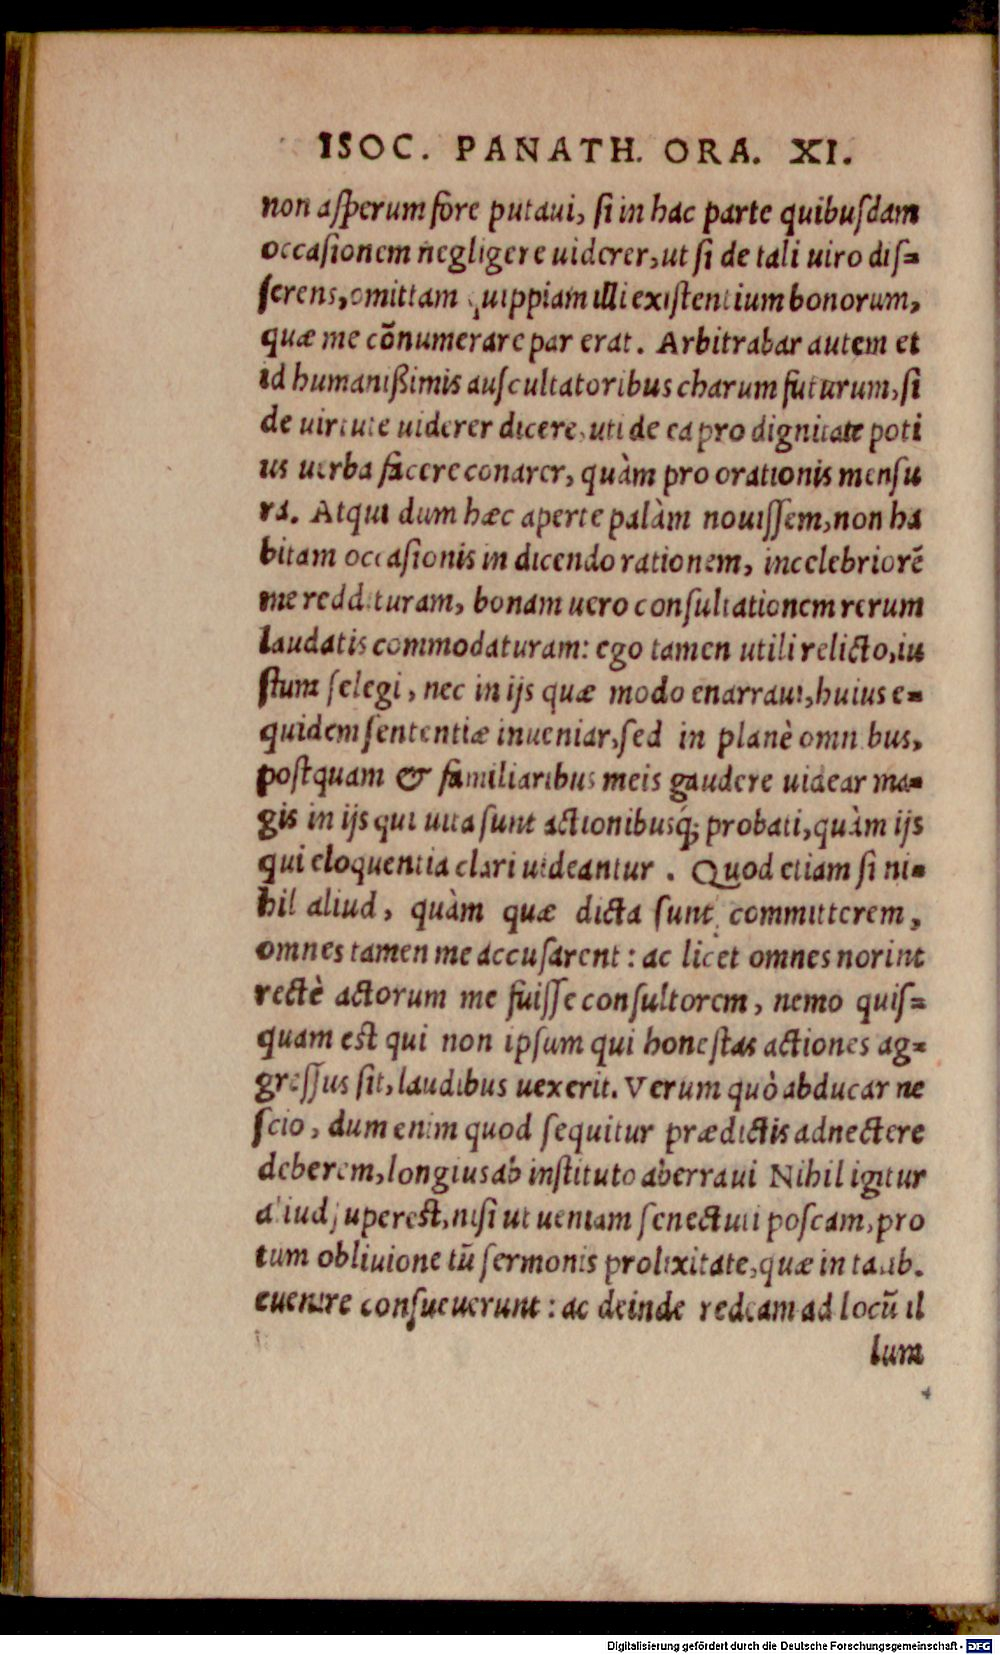 ISOC. PANATH. ORA. XI.
non asperum fore putaui, si in hac parte quibusdam
occasionem negligere uiderer, ut si de tali uiro dis=
serens, omittam quippiam illi existentium bonorum,
quæ me cõnumerare par erat. Arbitrabar autem et
id humanißimis auscultatoribus charum futurum, si
de uirtute uiderer dicere, uti de ea pro dignitate poti
us uerba facere conarer, quàm pro orationis mensu
ra. Atqui dum hæc aperte palàm nouissem, non ha
bitam occasionis in dicendo rationem, incelebriorẽ
me reddituram, bonam uero consultationem rerum
laudatis commodaturam: ego tamen utili relicto, iu
stum selegi, nec in ijs quæ modo enarraui, huius e=
quidem sententiæ inueniar, sed in planè omnibus,
postquam & familiaribus meis gaudere uidear ma=
gis in ijs qui uita sunt actionibusq́; probati, quàm ijs
qui eloquentia clari uideantur. Quod etiam si ni=
hil aliud, quàm quæ dicta sunt committerem,
omnes tamen me accusarent: ac licet omnes norint
rectè actorum me fuisse consultorem, nemo quis=
quam est qui non ipsum qui honestas actiones ag=
gressus sit, laudibus uexerit. Verum quò abducar ne
scio, dum enim quod sequitur prædictis adnectere
deberem, longius ab instituto aberraui Nihil igitur
aliud superest, nisi ut ueniam senectuti poscam, pro
tum obliuione tũ sermonis prolixitate, quæ in talib.
euenire consueuerunt: ac deinde redeam ad locũ il
lum
Digitalisierung gefördert durch die Deutsche Forschungsgemeinschaft - DFG